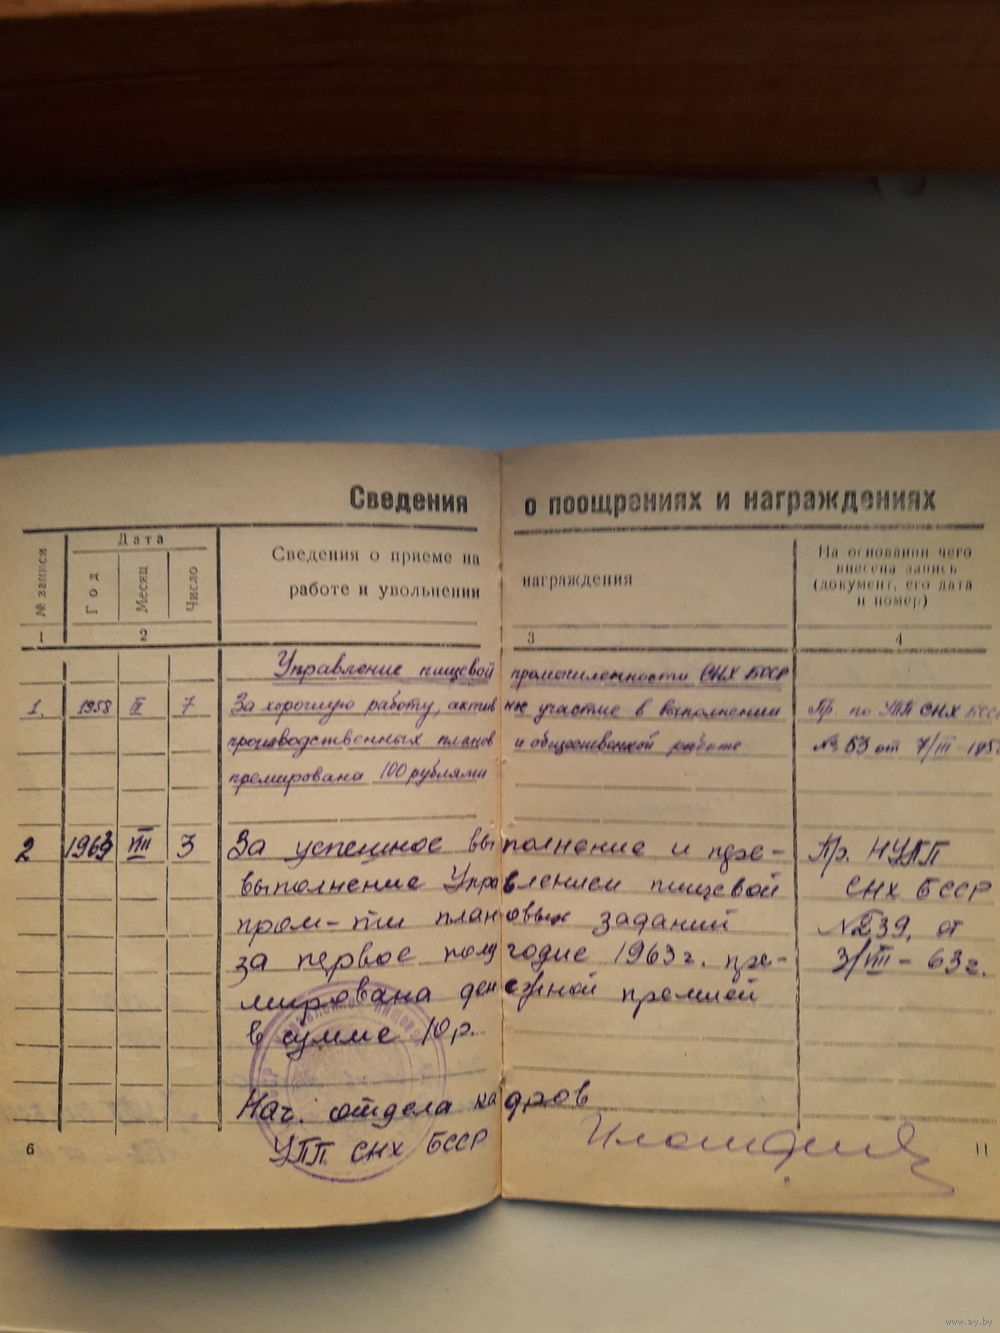 Сведения о поощрениях и награждениях
№ записи
Дата
Год
Месяц
Число
Сведения о приеме на
работе и увольнении
награждения
На основании чего
внесена запись
(документ, его дата
и номер)
1
2
3
4
Управление пищевой промышленности СНХ БССР
1. 1958 III 7 За хорошую работу, активное участие в выполнении Пр. по УПП СНХ БССР
производственных планов и общественной работе № 53 от 7/III-195
премирована 100 рублями
2 1963 VIII 3 За успешное выполнение и пере- Пр. НУПП
выполнение Управлением пищевой СНХ БССР
пром-ти плановых заданий № 239. от
за первое полугодие 1963 г. пре- 3/VIII-63г.
мирована денежной премией
в сумме 10 р.
Нач. отдела кадров
УПП СНХ БССР
6
11
www.ay.by